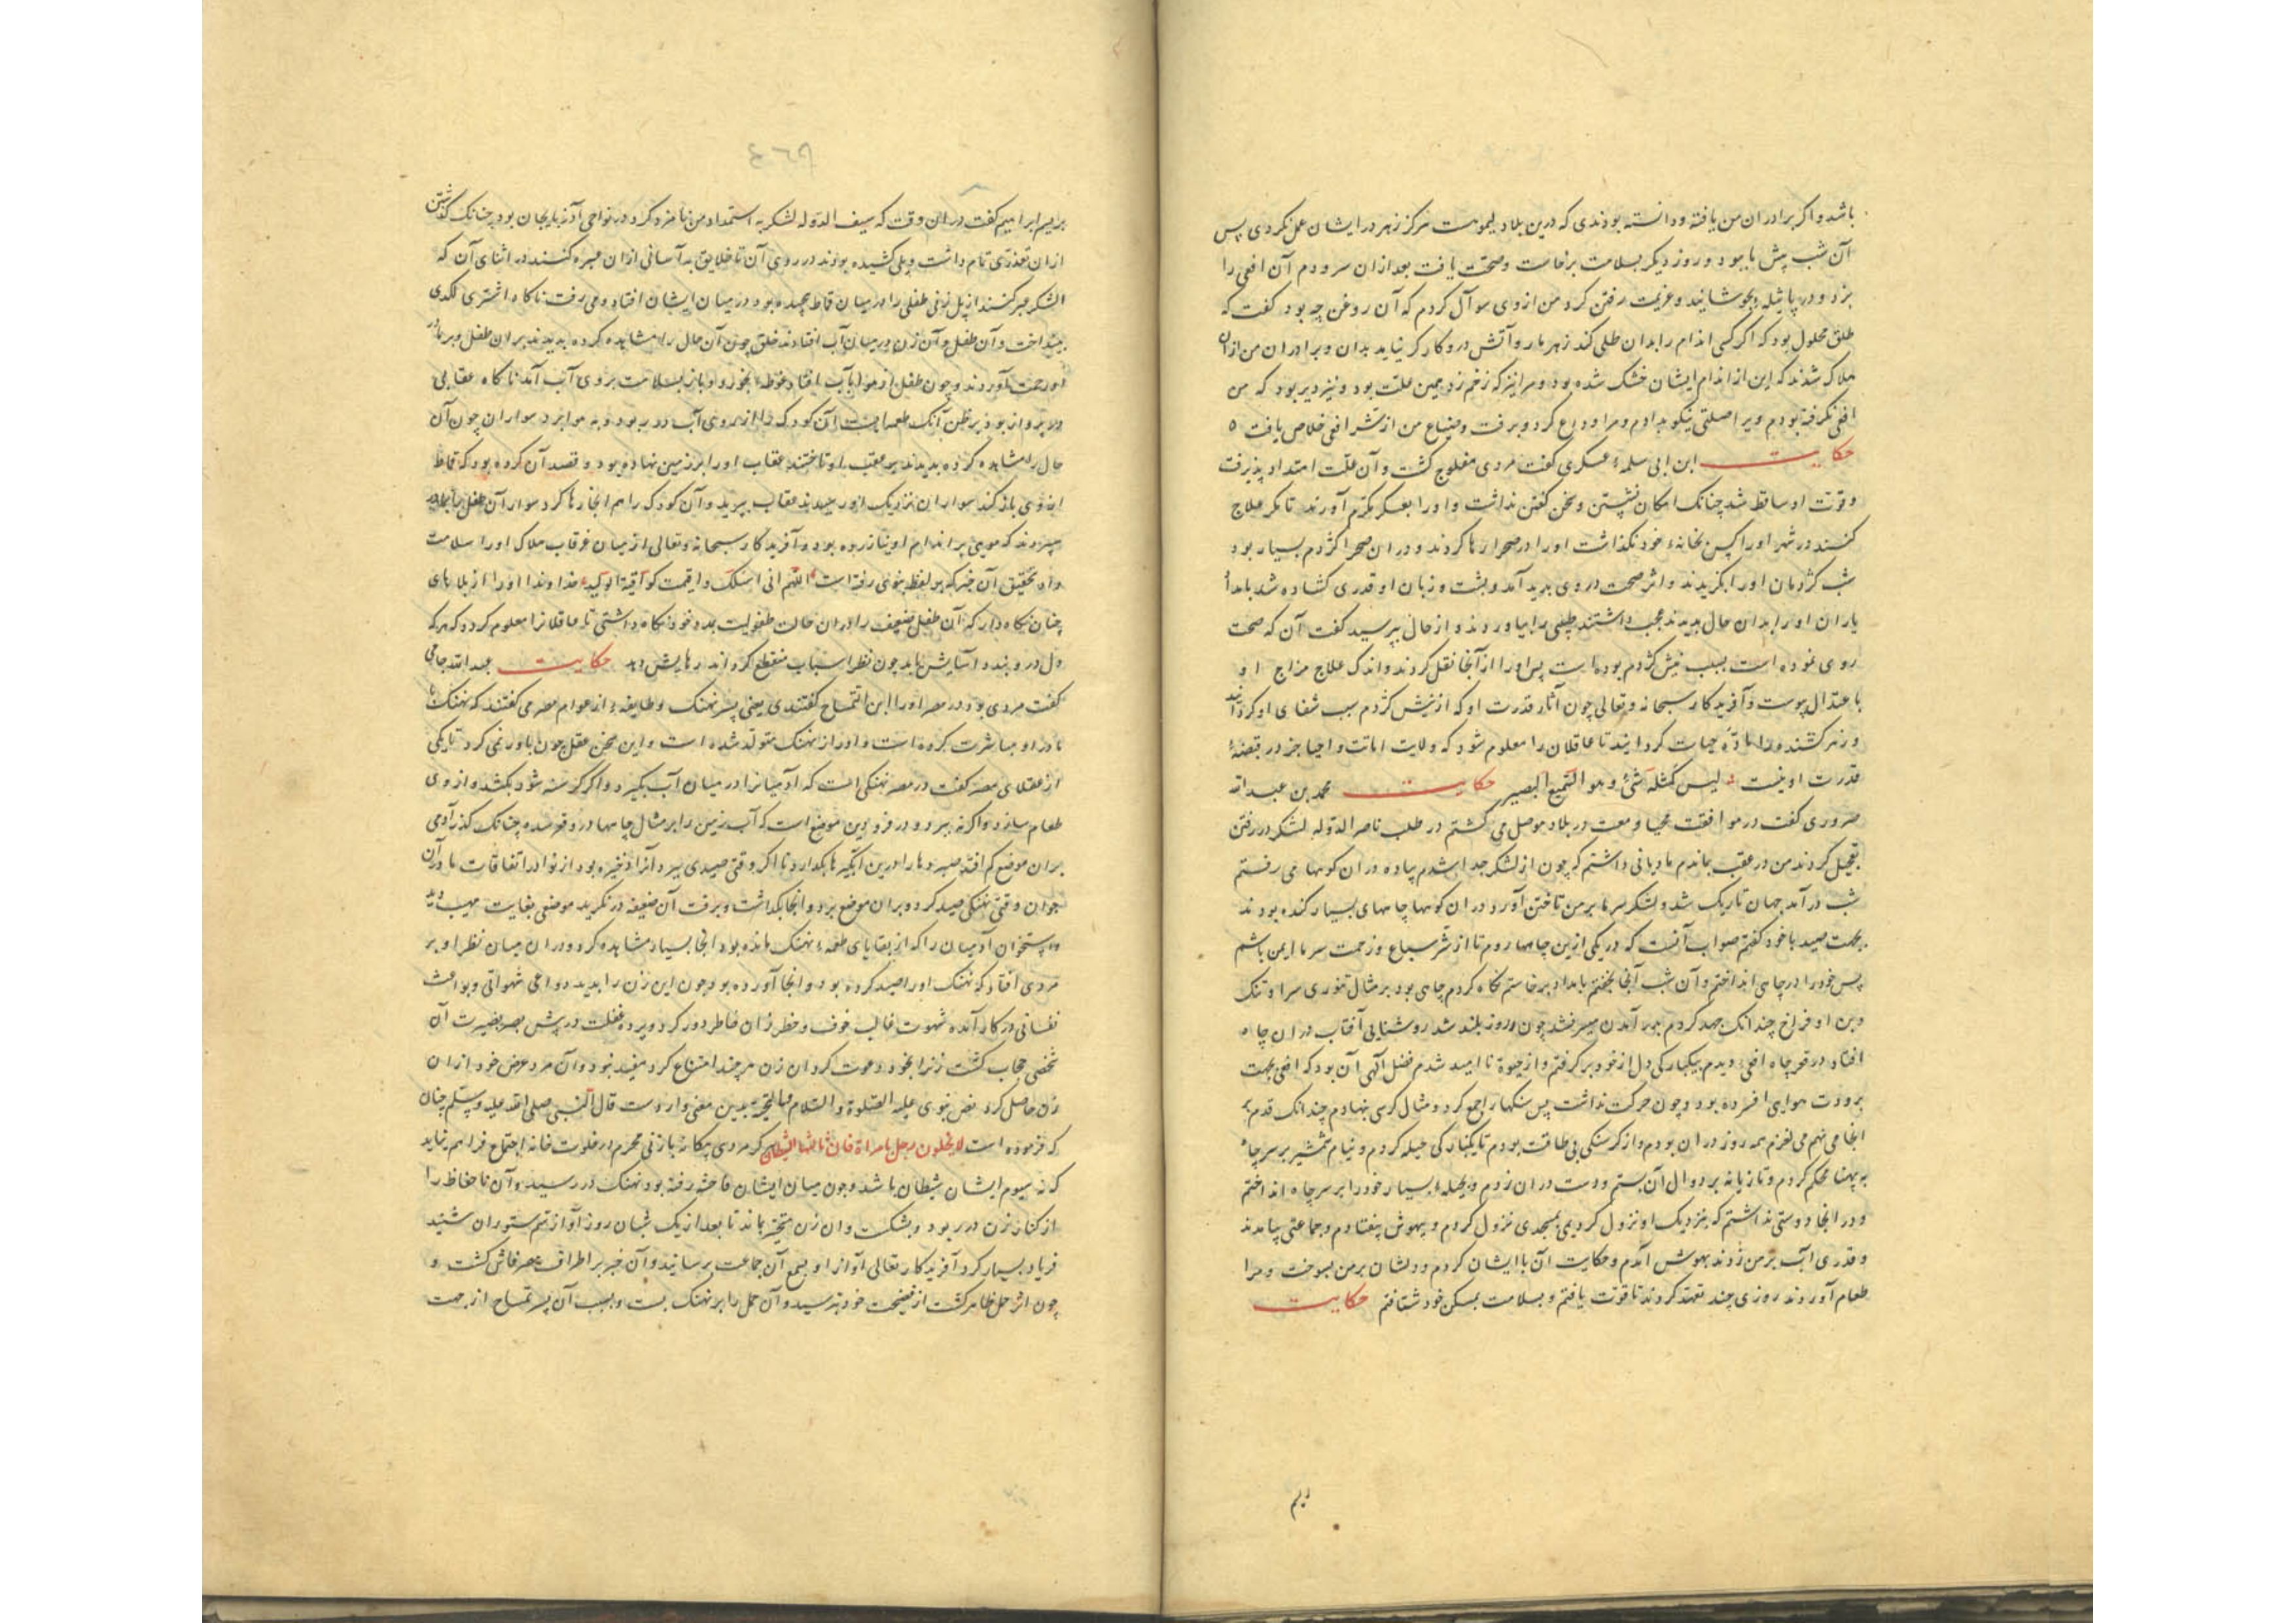 باشد و اگر برادران من یافته و دانسته بودندی که درین بلاد لیمو هست هرگز زهر در ایشان عمل نکردی پس
آن شب پیش ما ببود و روز دیگر بسلامت برخاست و صحت یافت بعد از آن سر و دم آن افعی را
بزد و در پاتیله بجوشانید و عزیمت رفتن کرد من از وی سوآل کردم که آن روغن چه بود گفت که
طلق محلول بود که اگر کسی اندام را بدان طلی کند زهر مار و آتش درو کارگر نیاید بدان و برادران من از آن
هلاک شدند که این از اندام ایشان خشک شده بود و مرا نیز که زخم زد بهمین علت بود و نیز دیر بود که من
افعی نگرفته بودم ویرا صلتی نیکو بدادم و مرا وداع کرد و برفت و ضیاع من از شر افعی خلاص یافت ٥
حکایت ابن ابی سلمهٔ عسکری گفت مردی مفلوج گشت و آن علت امتداد پذیرفت
و قوت او ساقط شد چنانک امکان نشستن و سخن گفتن نداشت و او را بعسکر مکرم آوردند تا مگر علاج
کنند در شهر او را کس بخانهٔ خود نگذاشت او را در صحرا رها کردند و در آن صحرا کژدم بسیار بود
شب کژدمان او را بگزیدند و اثر صحت در وی پدید آمد و پشت و زبان او قدری گشاده شد بامداد
یاران او را بدان حال بدیدند عجب داشتند طبیبی را بیاوردند و از حال بپرسید گفت آن که صحت
روی نموده است بسبب نیش کژدم بوده است پس او را از آنجا نقل کردند و اندک علاج مزاج او
باعتدال پیوست و آفریدگار سبحانه و تعالی چون آثار قدرت او که از نیش کژدم سبب شفای او گردانید
و زهر کشنده را مادّهٔ حیات گردانید تا عاقلان را معلوم شود که ولایت اماتت و احیا جز در قبضهٔ
قدرت او نیست لیس کمثله شیٔ و هو السّمیع البصیر حکایت محمد بن عبدالله
ضروری گفت در موافقت محیا و معت در بلاد موصل می گشتم در طلب ناصر الدوله لشکر در رفتن
تعجیل کردند من در عقب بماندم مادیانی داشتم که چون از لشکر جدا شدم پیاده در آن کوهها می رفتم
شب درآمد جهان تاریک شد و لشکر سرما بر من تاختن آورد و در آن کوهها چاههای بسیار کنده بودند
بجهت صید با خود گفتم صواب آنست که در یکی ازین چاهها روم تا از شر سباع و زحمت سرما ایمن باشم
پس خود را در چاهی انداختم و آن شب آنجا بخفتم بامداد برخاستم نگاه کردم چاهی بود بر مثال تنوری سر او تنگ
و بن او فراخ چندانک جهد کردم برآمدن میسر نشد چون روز بلند شد روشنایی آفتاب در آن چاه
افتاد در قعر چاه افعی دیدم بیکبارگی دل از خود برگرفتم و از حیوة ناامید شدم فضل الهی آن بود که افعی بجهت
برودت هوا افسرده بود و چون حرکت نداشت پس سنگها را جمع کرد و مثال کرسی بنهادم چندانک قدم بر
آنجا می نهم می لغزم سه روز در آن بودم و از گرسنگی بی طاقت بودم تا یکبارگی حیله کردم و نیام شمشیر بر سر چاه
به پهنا محکم کردم و تازیانه بر دوال آن بستم و دست در آن زدم و بحیلهٔ بسیار خود را بر سر چاه انداختم
و در آنجا دوستی نداشتم که بنزدیک او نزول کردیمی بمسجدی نزول کردم و بیهوش بیفتادم و جماعتی بیامدند
و قدری آب بر من زدند بهوش آمدم و حکایت آن با ایشان کردم و دلشان بر من بسوخت و مرا
طعام آوردند روزی چند تعهد کردند تا قوت یافتم و بسلامت بمسکن خود شتافتم حکایت
ریم
٤٦٨
بریم ابراهیم گفت در آن وقت که سیف الدوله لشکر به استمداد من نامزد کرد و در نواحی آذربایجان بود چنانک گذشتن
از آن تعذری تمام داشت و پلی کشیده بودند در روی آن تا خلایق به آسانی از آن عبره کنند در اثنای آن که
لشکر عبر کنند از پل زنی طفلی را در میان قماط پیچیده بود در میان ایشان افتاد و می رفت ناگاه اشتری لگدی
بینداخت و آن طفل و آن زن در میان آب افتادند خلق چون آن حال را مشاهده کرده بدیدند بر آن طفل و بر مادر
او رحمت آوردند و چون طفل از هوا بآب افتاد غوطهٔ بخورد و باز بسلامت بروی آب آمد ناگاه عقابی
در پرواز بود بر ظن آنک طعمه است آن کودک را از روی آب در ربود و به هوا برد سواران چون آن
حال را مشاهده کرده بدیدند بر عقب او تاختند عقاب او را بر زمین نهاده بود و قصد آن کرده بود که قماط
از وی باز کند سواران نزدیک او رسیدند عقاب بپرید و آن کودک را هم آنجا رها کرد سوار آن طفل بمادر
سپردند که مویی بر اندام او نیازرده بود و آفریدگار سبحانه و تعالی از میان غرقاب هلاک او را سلامت
داد تحقیق آن خبر که بر لفظ نبوی رفته است اللّهم انی اسئلک واقیه کواقیة الولید خداوندا او را از بلاهای
چنان نگاه دار که آن طفل ضعیف را در آن حالت طفولیت بمدد خود نگاه داشتی تا عاقلان را معلوم گردد که هر که
دل در و بندد آسایش یابد چون نظر اسباب منقطع گرداند رهایش دهد حکایت عبدالله جامی
گفت مردی بود در مصر او را ابن التمساح گفتندی یعنی پسر نهنگ و طایفهٔ از عوام مصر می گفتند که نهنگ با
مادر او مباشرت کرده است و او از نهنگ متولد شده است و این سخن عقل چون باور نمی کرد تا یکی
از عقلای مصر گفت در مصر نهنگی است که آدمیان را در میان آب بگیرد و اگر گرسنه شود بکشد و از وی
طعام سازد و اگر نه ببرد و در فرودین موضع است که آب زمین را بر مثال چاهها در وقر شده چنانک گذر آدمی
بر آن موضع کم افتد صیدها را درین آبگیرها بگذارد تا اگر وقتی صیدی نبرد آنرا ذخیره بود از نوادر اتفاقات مادر آن
جوان وقتی نهنگی صید کرد و بر آن موضع برد و آنجا بگذاشت و برفت آن ضعیفه در نگرید موضعی بغایت مهیب دید
و استخوان آدمیان را که از بقایای طعمهٔ نهنگ مانده بود آنجا بسیار مشاهده کرد و در آن میان نظر او بر
مردی افتاد که نهنگ او را صید کرده بود و آنجا آورده بود چون این زن را بدید دواعی شهوانی و بواعث
نفسانی در کار آمده شهوت غالب خوف و خطر ز آن خاطر دور کرد و پرده غفلت در پیش بصر بصیرت آن
شخص حجاب گشت زن را بخود دعوت کرد آن زن هر چند امتناع کرد مفید نبود و آن مرد غرض خود از آن
زن حاصل کرد نص نبوی علیه الصّلوة و السّلام و التحیة بدین معنی وارد است قال النّبی صلی الله علیه و سلّم چنان
که فرموده است لا یخلون رجل بامراة فان ثالثهما الشیطان هر که مردی بیگانه با زنی محرم در خلوت خانه اجتماع فراهم نیاید
که نه سیوم ایشان شیطان باشد و چون میان ایشان فاحشه رفته بود نهنگ در رسید و آن ناحفاظ را
از کنار زن در ربود و بشکست و آن زن متحیر بماند تا بعد از یک شبان روز آواز سم ستوران شنید
فریاد بسیار کرد آفریدگار تعالی آواز او بسمع آن جماعت برسانید و آن خبر بر اطراف مصر فاش گشت و
چون اثر حمل ظاهر گشت از فضیحت خود بترسید و آن حمل را بر نهنگ بست و بسبب آن پسر تمساح از جهت